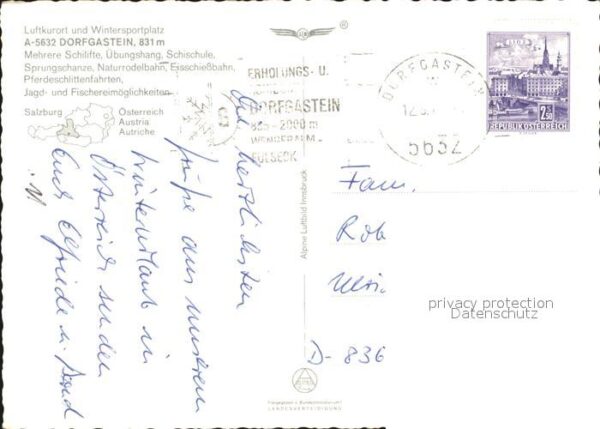 Luftkurort und Wintersportplatz
A-5632 DORFGASTEIN, 831 m
Mehrere Schilifte, Übungshang, Schischule,
Sprungschanze, Naturrodelbahn, Eisschießbahn,
Pferdeschlittenfahrten,
Jagd- und Fischereimöglichkeiten
Salzburg
Österreich
Austria
Autriche
®
ERHOLUNGS- U.
DORFGASTEIN
835-2000 m
DORFGASTEIN
5632
2.50
REPUBLIK ÖSTERREICH
Die herzlichsten
Grüße aus unserem
Winterurlaub in
Österreich senden
Euch Elfriede u.
Fam.
Rob
Ulri
D-836
Alpine Luftbild Innsbruck
privacy protection
Datenschutz
LANDESVERTEIDIGUNG